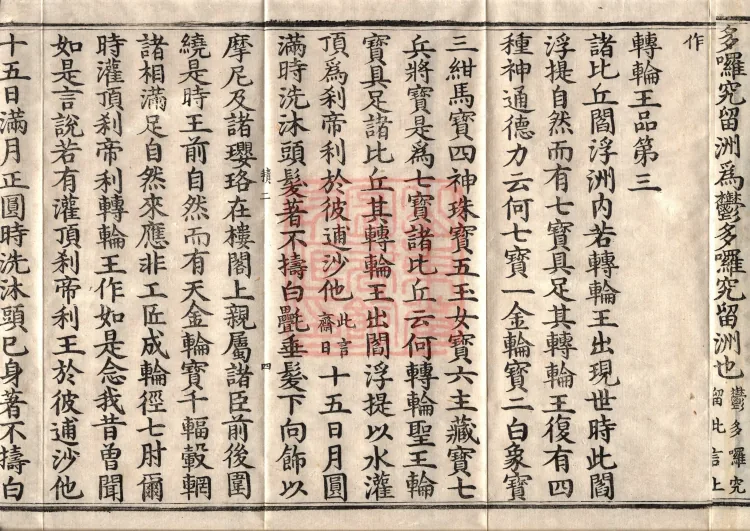 多囉究留洲為鬱多囉究留洲也鬱多囉究留此言上
作
轉輪王品第三
諸比丘閻浮洲內若轉輪王出現世時此閻
浮提自然而有七寶具足其轉輪王復有四
種神通德力云何七寶一金輪寶二白象寶
三紺馬寶四神珠寶五玉女寶六主藏寶七
兵將寶是為七寶諸比丘云何轉輪聖王輪
寶具足諸比丘其轉輪王出閻浮提以水灌
頂為剎帝利於彼逋沙他此言齋日十五日月圓
滿時洗沐頭髮著不擣白氎垂髮下向飾以
摩尼及諸瓔珞在樓閣上親屬諸臣前後圍
繞是時王前自然而有天金輪寶千輻轂輞
諸相滿足自然來應非工匠成輪徑七肘爾
時灌頂剎帝利轉輪王作如是念我昔曾聞
如是言說若有灌頂剎帝利王於彼逋沙他
十五日滿月正圓時洗沐頭已身著不擣白
四